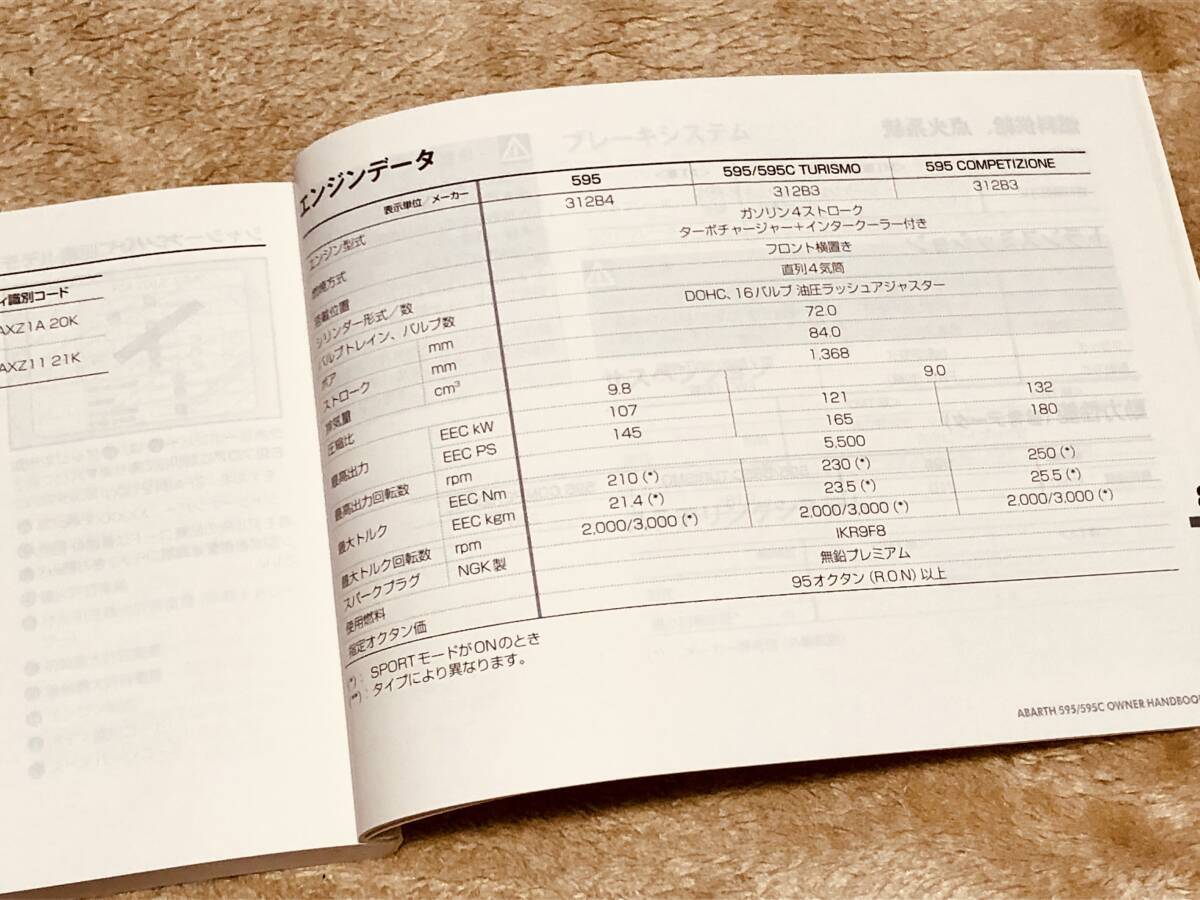 ィ識別コード
AXZ1A 20K
AXZ11 21K
エンジンデータ
表示単位／メーカー 595 595/595C TURISMO 595 COMPETIZIONE
エンジン型式 312B4 312B3 312B3
燃焼方式 ガソリン4ストローク
ターボチャージャー＋インタークーラー付き
搭載位置 フロント横置き
シリンダー形式／数 直列4気筒
バルブトレイン、バルブ数 DOHC、16バルブ 油圧ラッシュアジャスター
ボア mm 72.0
ストローク mm 84.0
排気量 cm³ 1,368
圧縮比 9.8 9.0
最高出力 EEC kW 107 121 132
EEC PS 145 165 180
最高出力回転数 rpm 5,500
最大トルク EEC Nm 210 (*) 230 (*) 250 (*)
EEC kgm 21.4 (*) 23.5 (*) 25.5 (*)
最大トルク回転数 rpm 2,000/3,000 (*) 2,000/3,000 (*) 2,000/3,000 (*)
スパークプラグ NGK 製 IKR9F8
使用燃料 無鉛プレミアム
指定オクタン価 95オクタン (R.O.N) 以上
(*)： SPORTモードがONのとき
(**)：タイプにより異なります。
ABARTH 595/595C OWNER HANDBOO